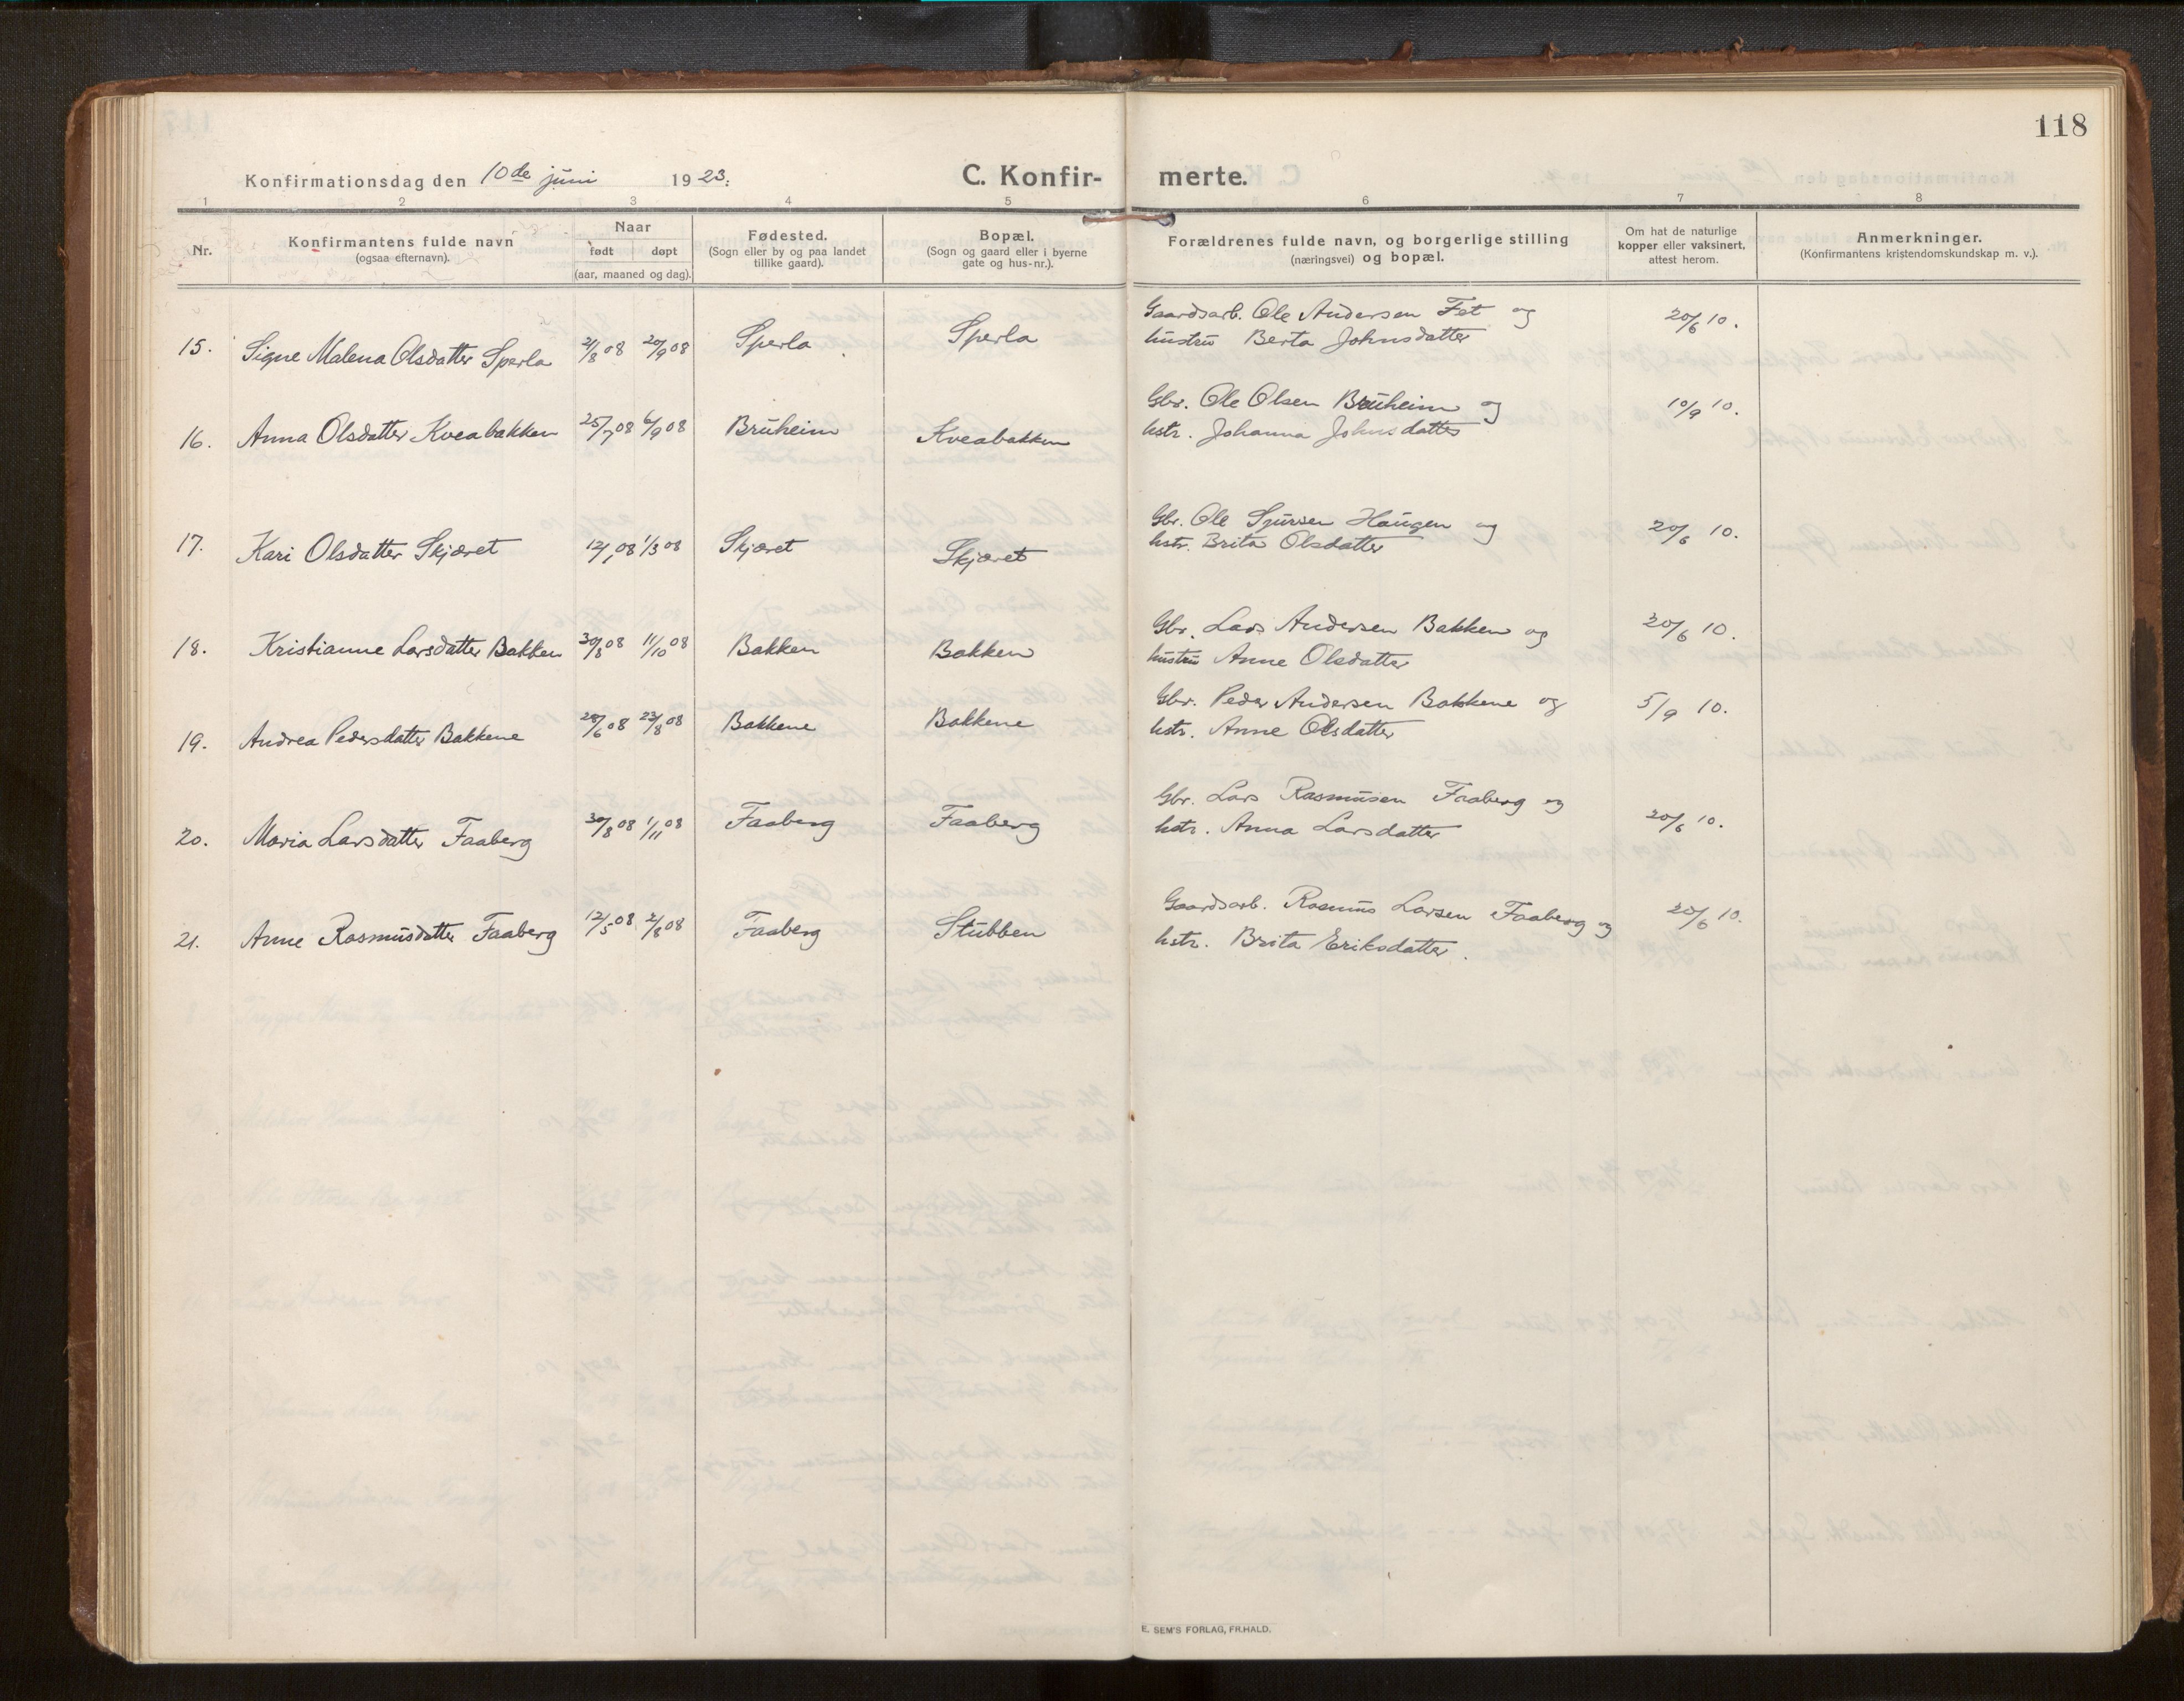 118
Konfirmationsdag den 10de juni 1923.
C. Konfir- merte.
1 2 3 4 5 6 7 8
Nr.
Konfirmantens fulde navn
(ogsaa efternavn).
Naar
født døpt
(aar, maaned og dag).
Fødested.
(Sogn eller by og paa landet
tillike gaard).
Bopæl.
(Sogn og gaard eller i byerne
gate og hus-nr.).
Forældrenes fulde navn, og borgerlige stilling
(næringsvei) og bopæl.
Om hat de naturlige
kopper eller vaksinert,
attest herom.
Anmerkninger.
(Konfirmantens kristendomskundskap m. v.).
15. Signe Malena Olsdatter Sperla 21/8 08 20/9 08 Sperla Sperla
Gaardsarb. Ole Andersen Fet og
hustru Berta Johnsdatter
20/6 10.
16. Anna Olsdatter Kveabakken 25/7 08 6/9 08 Bruheim Kveabakken
Gbr. Ole Olsen Bruheim og
hstr. Johanna Johnsdatter
10/9 10.
17. Kari Olsdatter Skjæret 12/1 08 1/3 08 Skjæret Skjæret
Gbr. Ole Sjursen Haugen og
hstr. Brita Olsdatter
20/6 10.
18. Kristianne Larsdatter Bakken 30/8 08 11/10 08 Bakken Bakken
Gbr. Lars Andersen Bakken og
hustru Anne Olsdatter
20/6 10.
19. Andrea Pedersdatter Bakkene 28/6 08 23/8 08 Bakkene Bakkene
Gbr. Peder Andersen Bakkene og
hstr. Anne Olsdatter
5/9 10.
20. Maria Larsdatter Faaberg 30/8 08 1/11 08 Faaberg Faaberg
Gbr. Lars Rasmusen Faaberg og
hstr. Anna Larsdatter
20/6 10.
21. Anne Rasmusdatter Faaberg 12/5 08 2/8 08 Faaberg Stubben
Gaardsarb. Rasmus Larsen Faaberg og
hstr. Brita Eriksdatter.
20/6 10.
E. SEM'S FORLAG, FR.HALD.